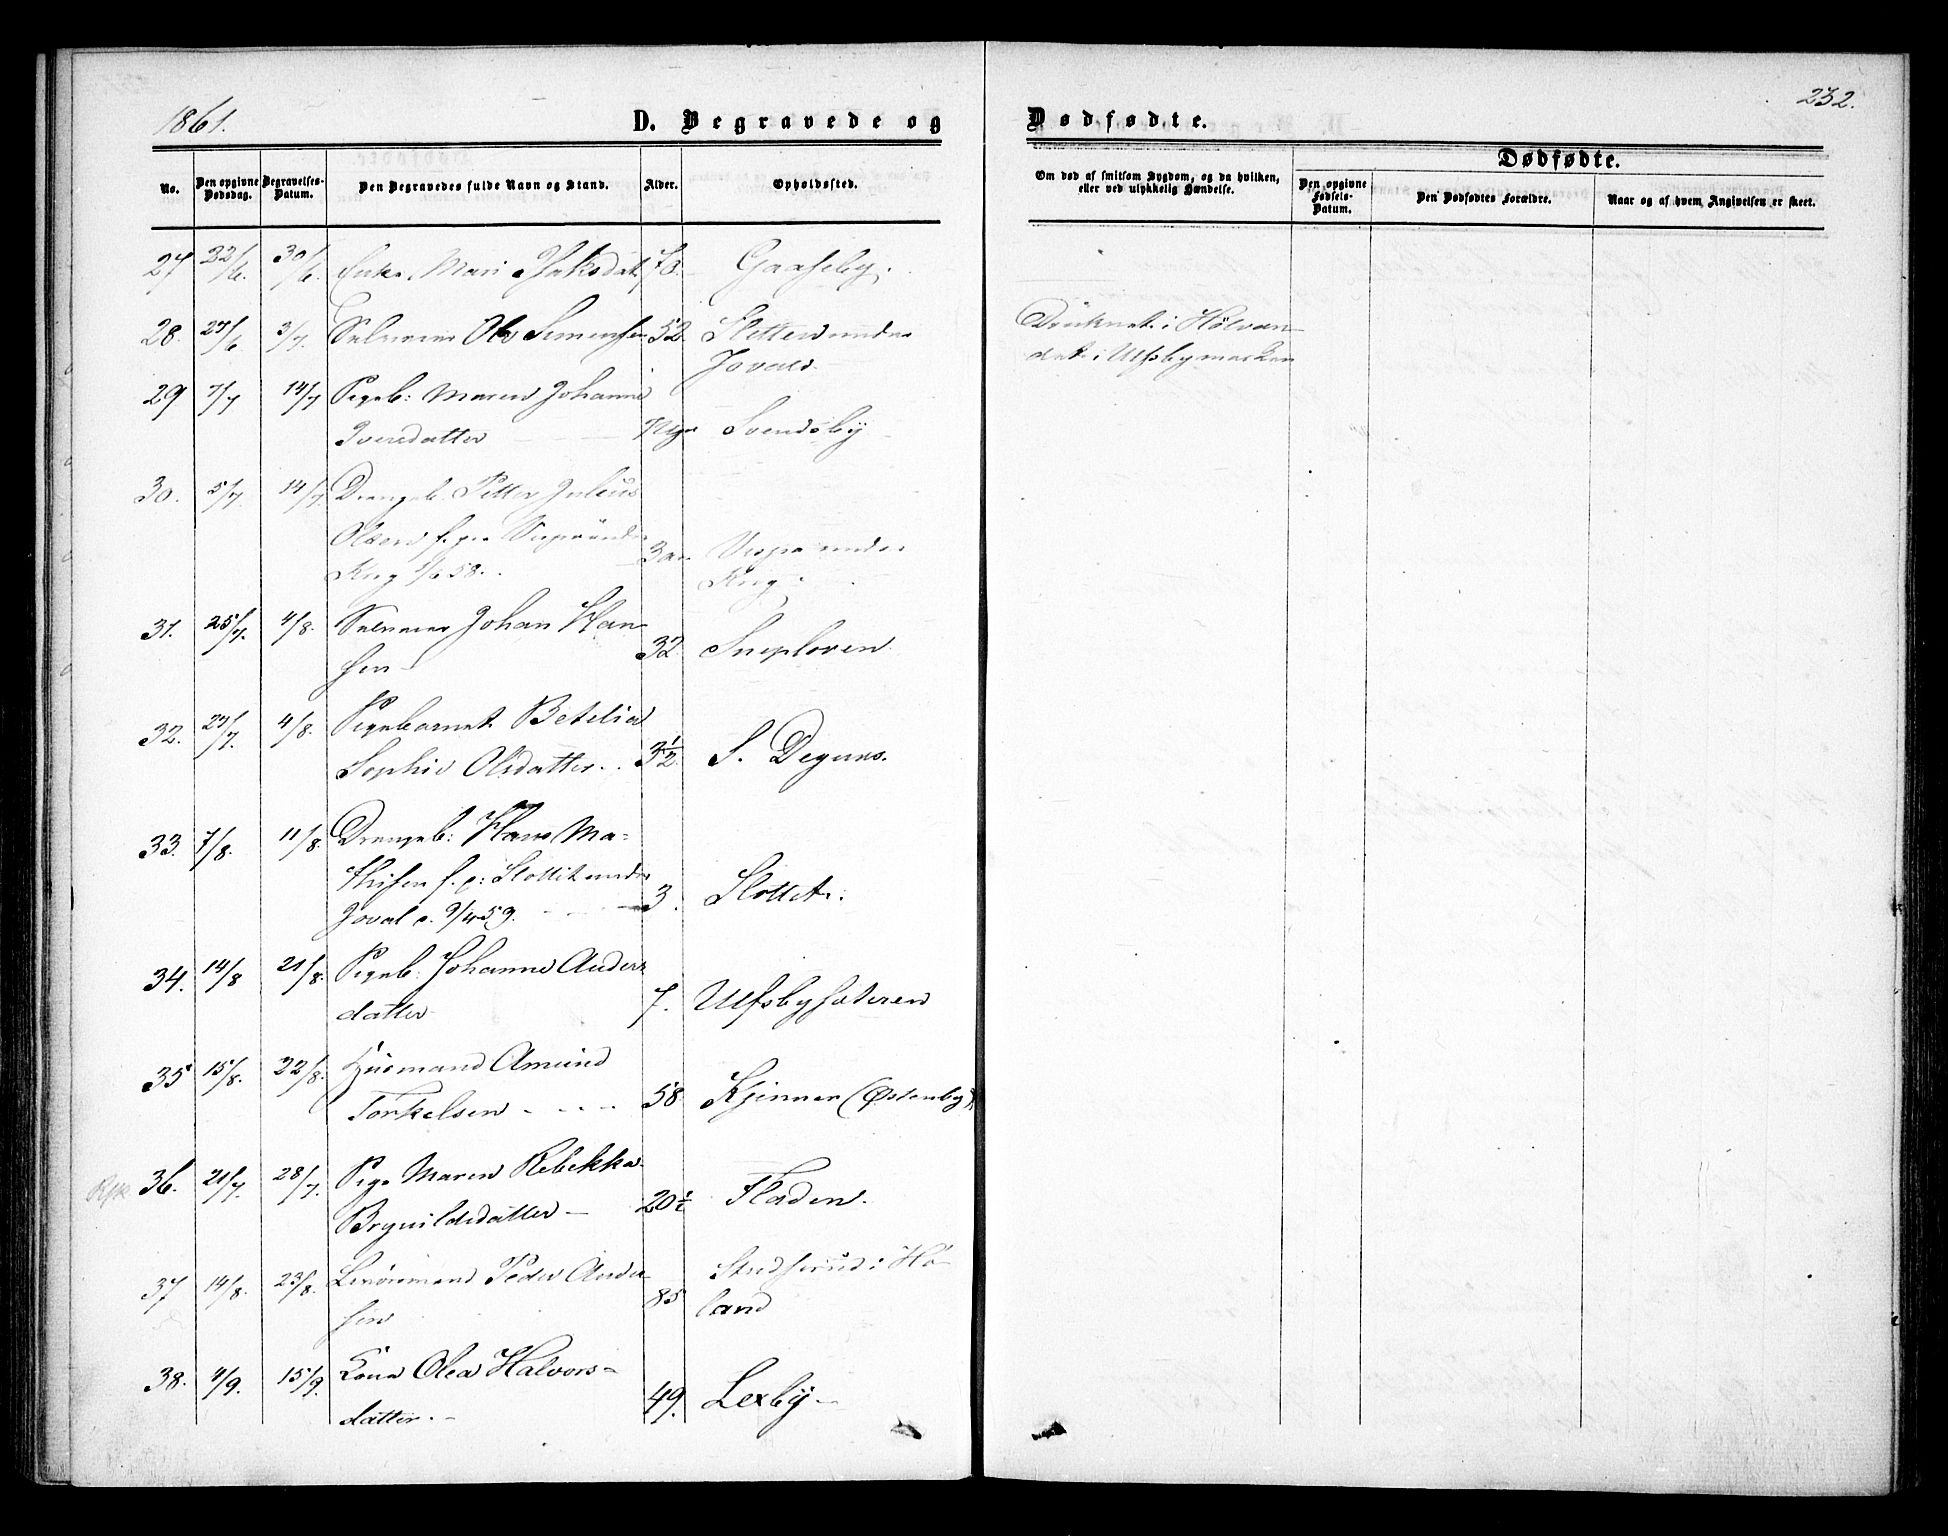 1861.
D. Begravede og
Dødfødte.
232.
No.
Den opgivne Dødsdag.
Begravelses-Datum.
Den Begravedes fulde Navn og Stand.
Alder.
Opholdssted.
Om død af smitsom Sygdom, og da hvilken, eller ved ulykkelig Hændelse.
Dødfødte.
Den opgivne Fødsels-Datum.
Den Dødfødtes Forældre.
Naar og af hvem Angivelsen er skeet.
27 22/6 30/6 Enke Mari 70. Gaaseby.
28. 27/6 3/7. Selveier Ole Simensen 52 Sletten under
Joval
Drüknet i Hölvan-
det i Ulfsbymarken
29 7/7 14/7 Pigeb: Maren Johanne
Iversdatter Svendsby
30. 5/7 14/7 Drengeb. Petter Julius
Olsen f. paa under
Krog 58. 3 under
Krog.
31. 25/7. 4/8. Selveier Johan Han-
sen 32 Sneploven
32. 27/7. 4/8. Pigebarnet Betilia
Sophie Olsdatter. 3½ S. Degnes.
33. 7/8. 11/8. Drengeb: Hans Ma-
thisen f. p: Slottet under
Joval d. 9/4 59. 3. Slottet.
34. 14/8 21/8. Pigeb: Johanne Anders
datter 7. Ulfsbysæteren
35 15/8. 22/8. Hüsmand Amünd
Torkelsen 58 Kjinner (Østenby)
36. 21/7. 28/7. Pige Maren Rebekka
Brynildsdatter 20½ Fladen.
37 14/8. 23/8. Peder Ander-
sen 85 i Hö-
land
38. 4/9. 15/9. Kone Olea Halvors-
datter. 49. Lexby